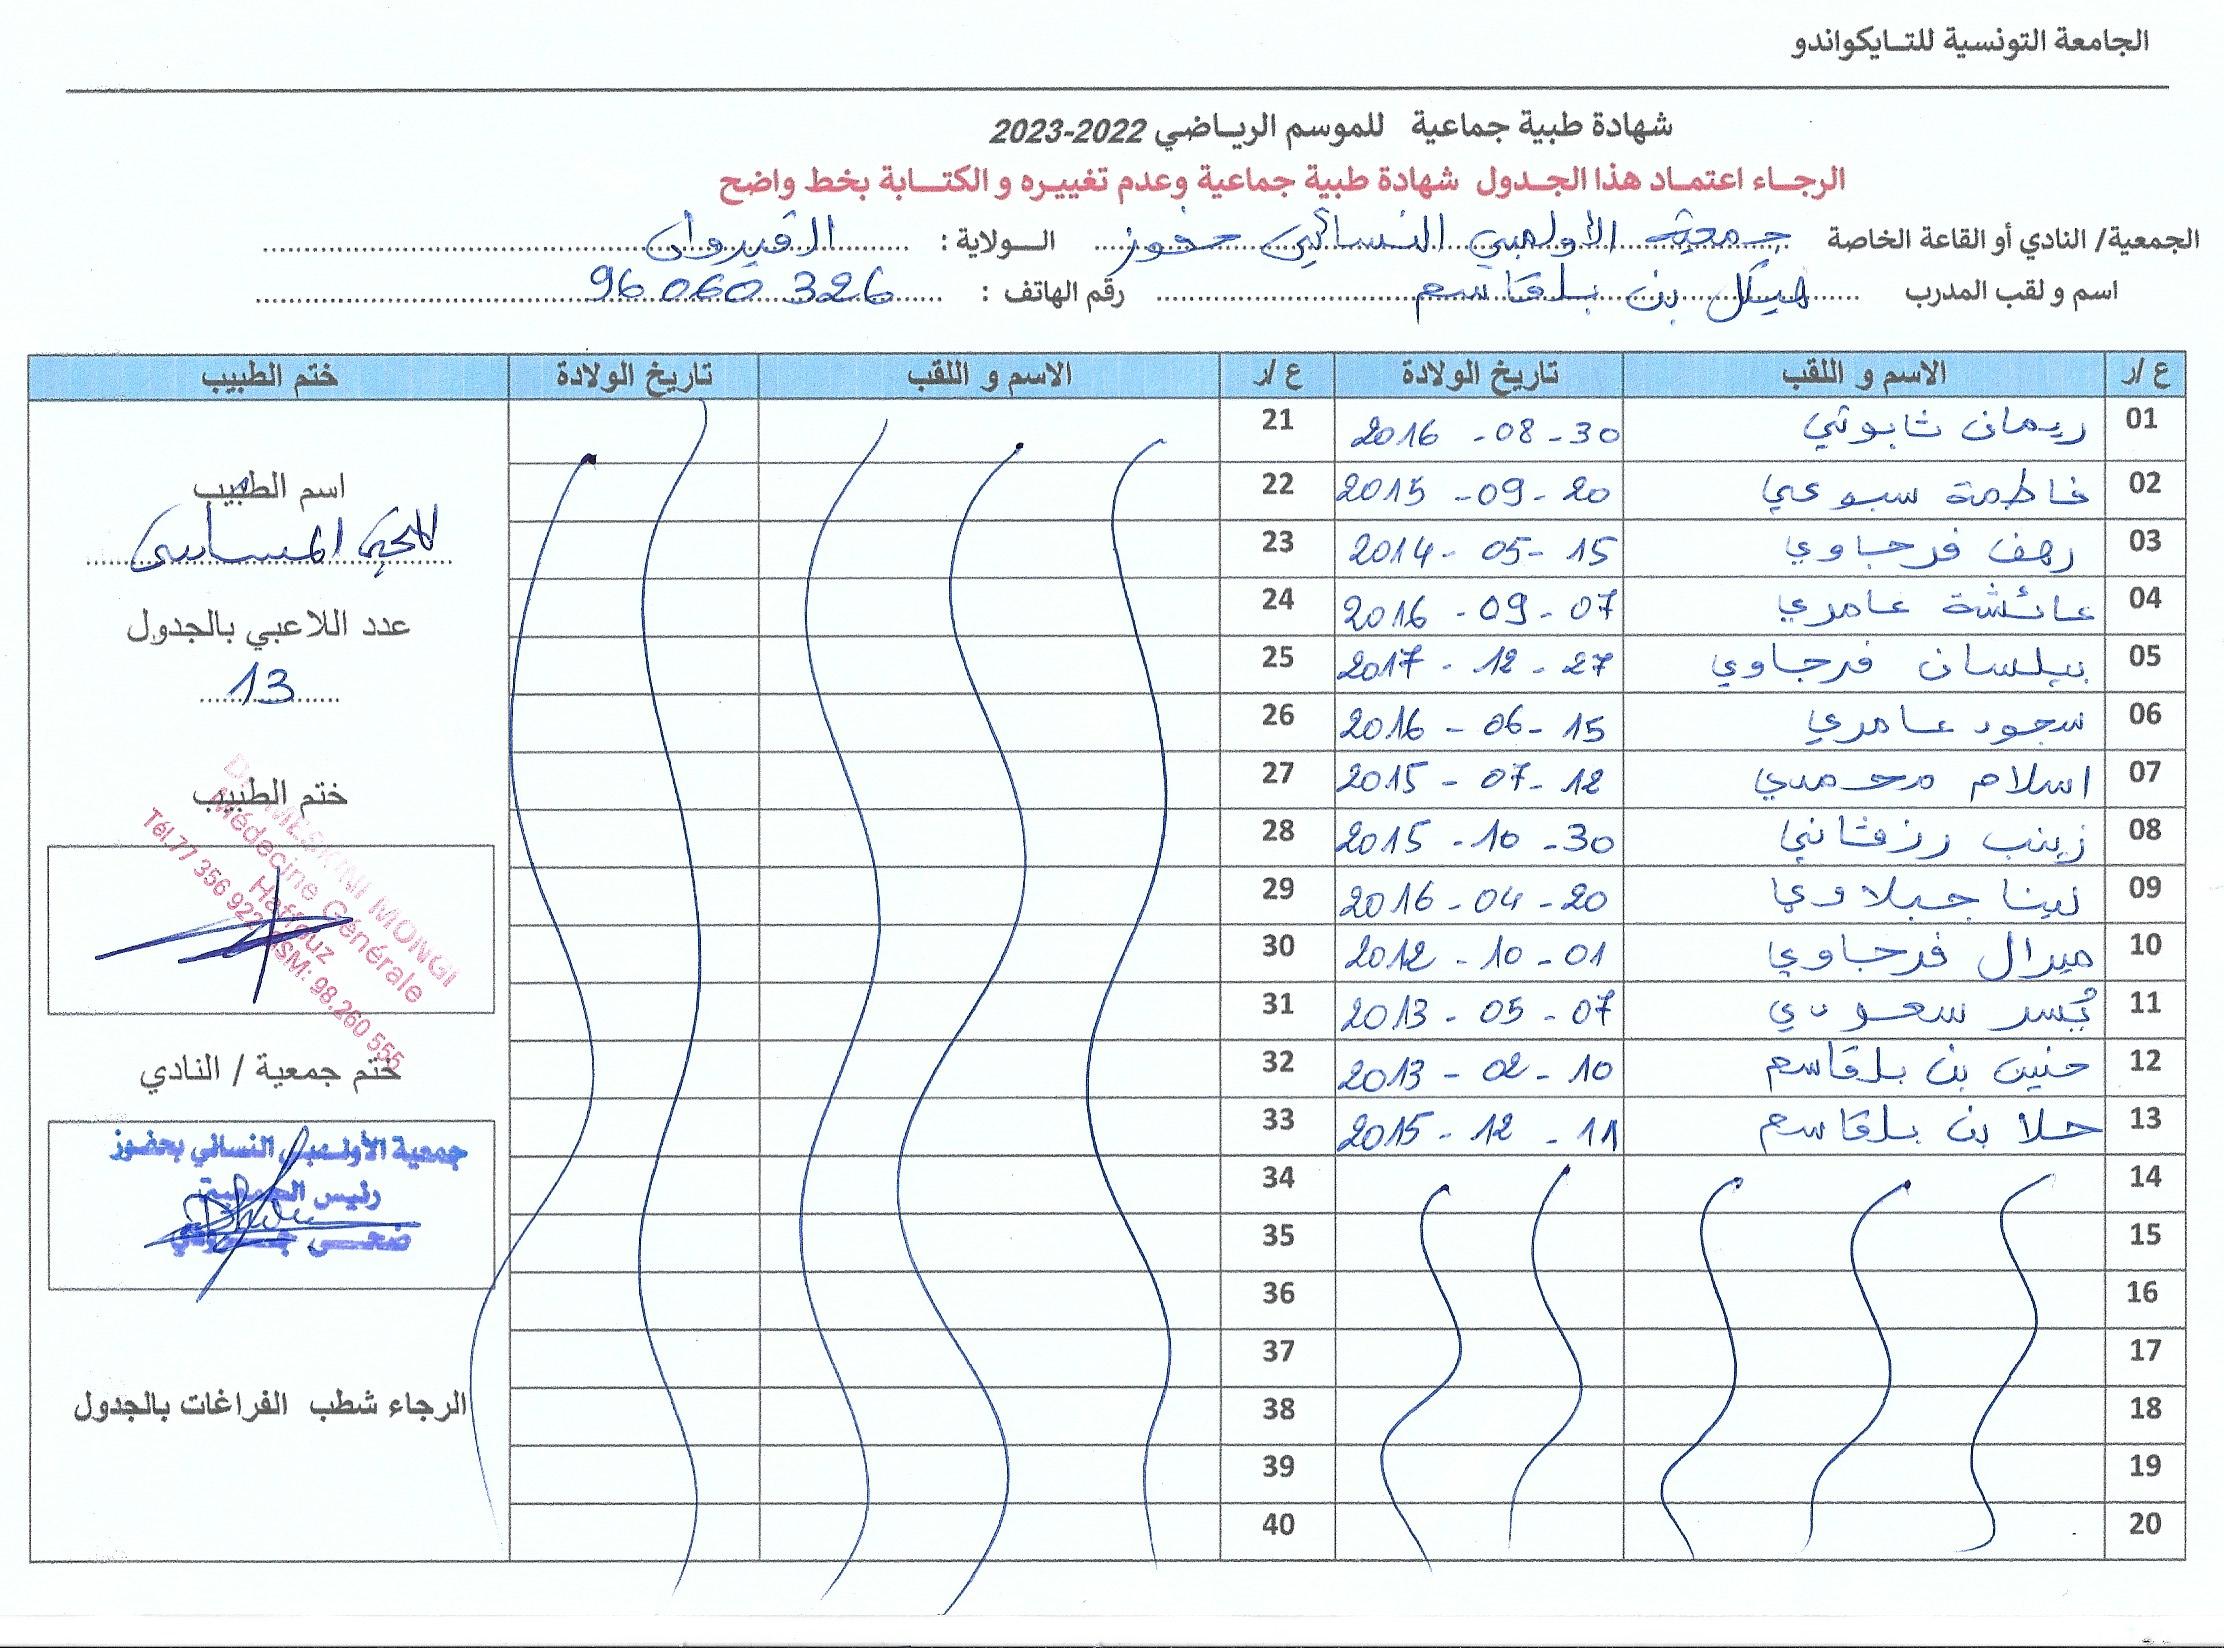 الجامعة التونسية للتايكواندو
شهادة طبية جماعية للموسم الرياضي 2022-2023
الرجاء اعتماد هذا الجدول شهادة طبية جماعية وعدم تغييره و الكتابة بخط واضح
الجمعية/ النادي أو القاعة الخاصة جمعية الأولمبي النسائي حفوز الولاية : القيروان
اسم و لقب المدرب هيكل بن بلقاسم رقم الهاتف : 96 060 326
ع /ر الاسم و اللقب تاريخ الولادة ع /ر الاسم و اللقب تاريخ الولادة ختم الطبيب
01 ريمان ثابوتي 30 - 08 - 2016 21
02 فاطمة سبوعي 20 - 09 - 2015 22
03 رهف فرجاوي 15 - 05 - 2014 23
04 عائشة عامري 07 - 09 - 2016 24
05 بيلسان فرجاوي 27 - 12 - 2017 25
06 سجود عامري 15 - 06 - 2016 26
07 اسلام محمدي 12 - 07 - 2015 27
08 زينب رزقاني 30 - 10 - 2015 28
09 لينا جبلاوي 20 - 04 - 2016 29
10 ميرال فرجاوي 01 - 10 - 2012 30
11 يُسر سعودي 07 - 05 - 2013 31
12 حنين بن بلقاسم 10 - 02 - 2013 32
13 حلا بن بلقاسم 11 - 12 - 2015 33
14 34
15 35
16 36
17 37
18 38
19 39
20 40
اسم الطبيب
عدد اللاعبي بالجدول
13
ختم الطبيب
Dr MESKINI MONGI
Médecine Générale
Haffouz
Tél.77 356 922 GSM: 98.260 555
ختم جمعية / النادي
جمعية الأولمبي النسائي بحفوز
رئيس الجمعية
الرجاء شطب الفراغات بالجدول